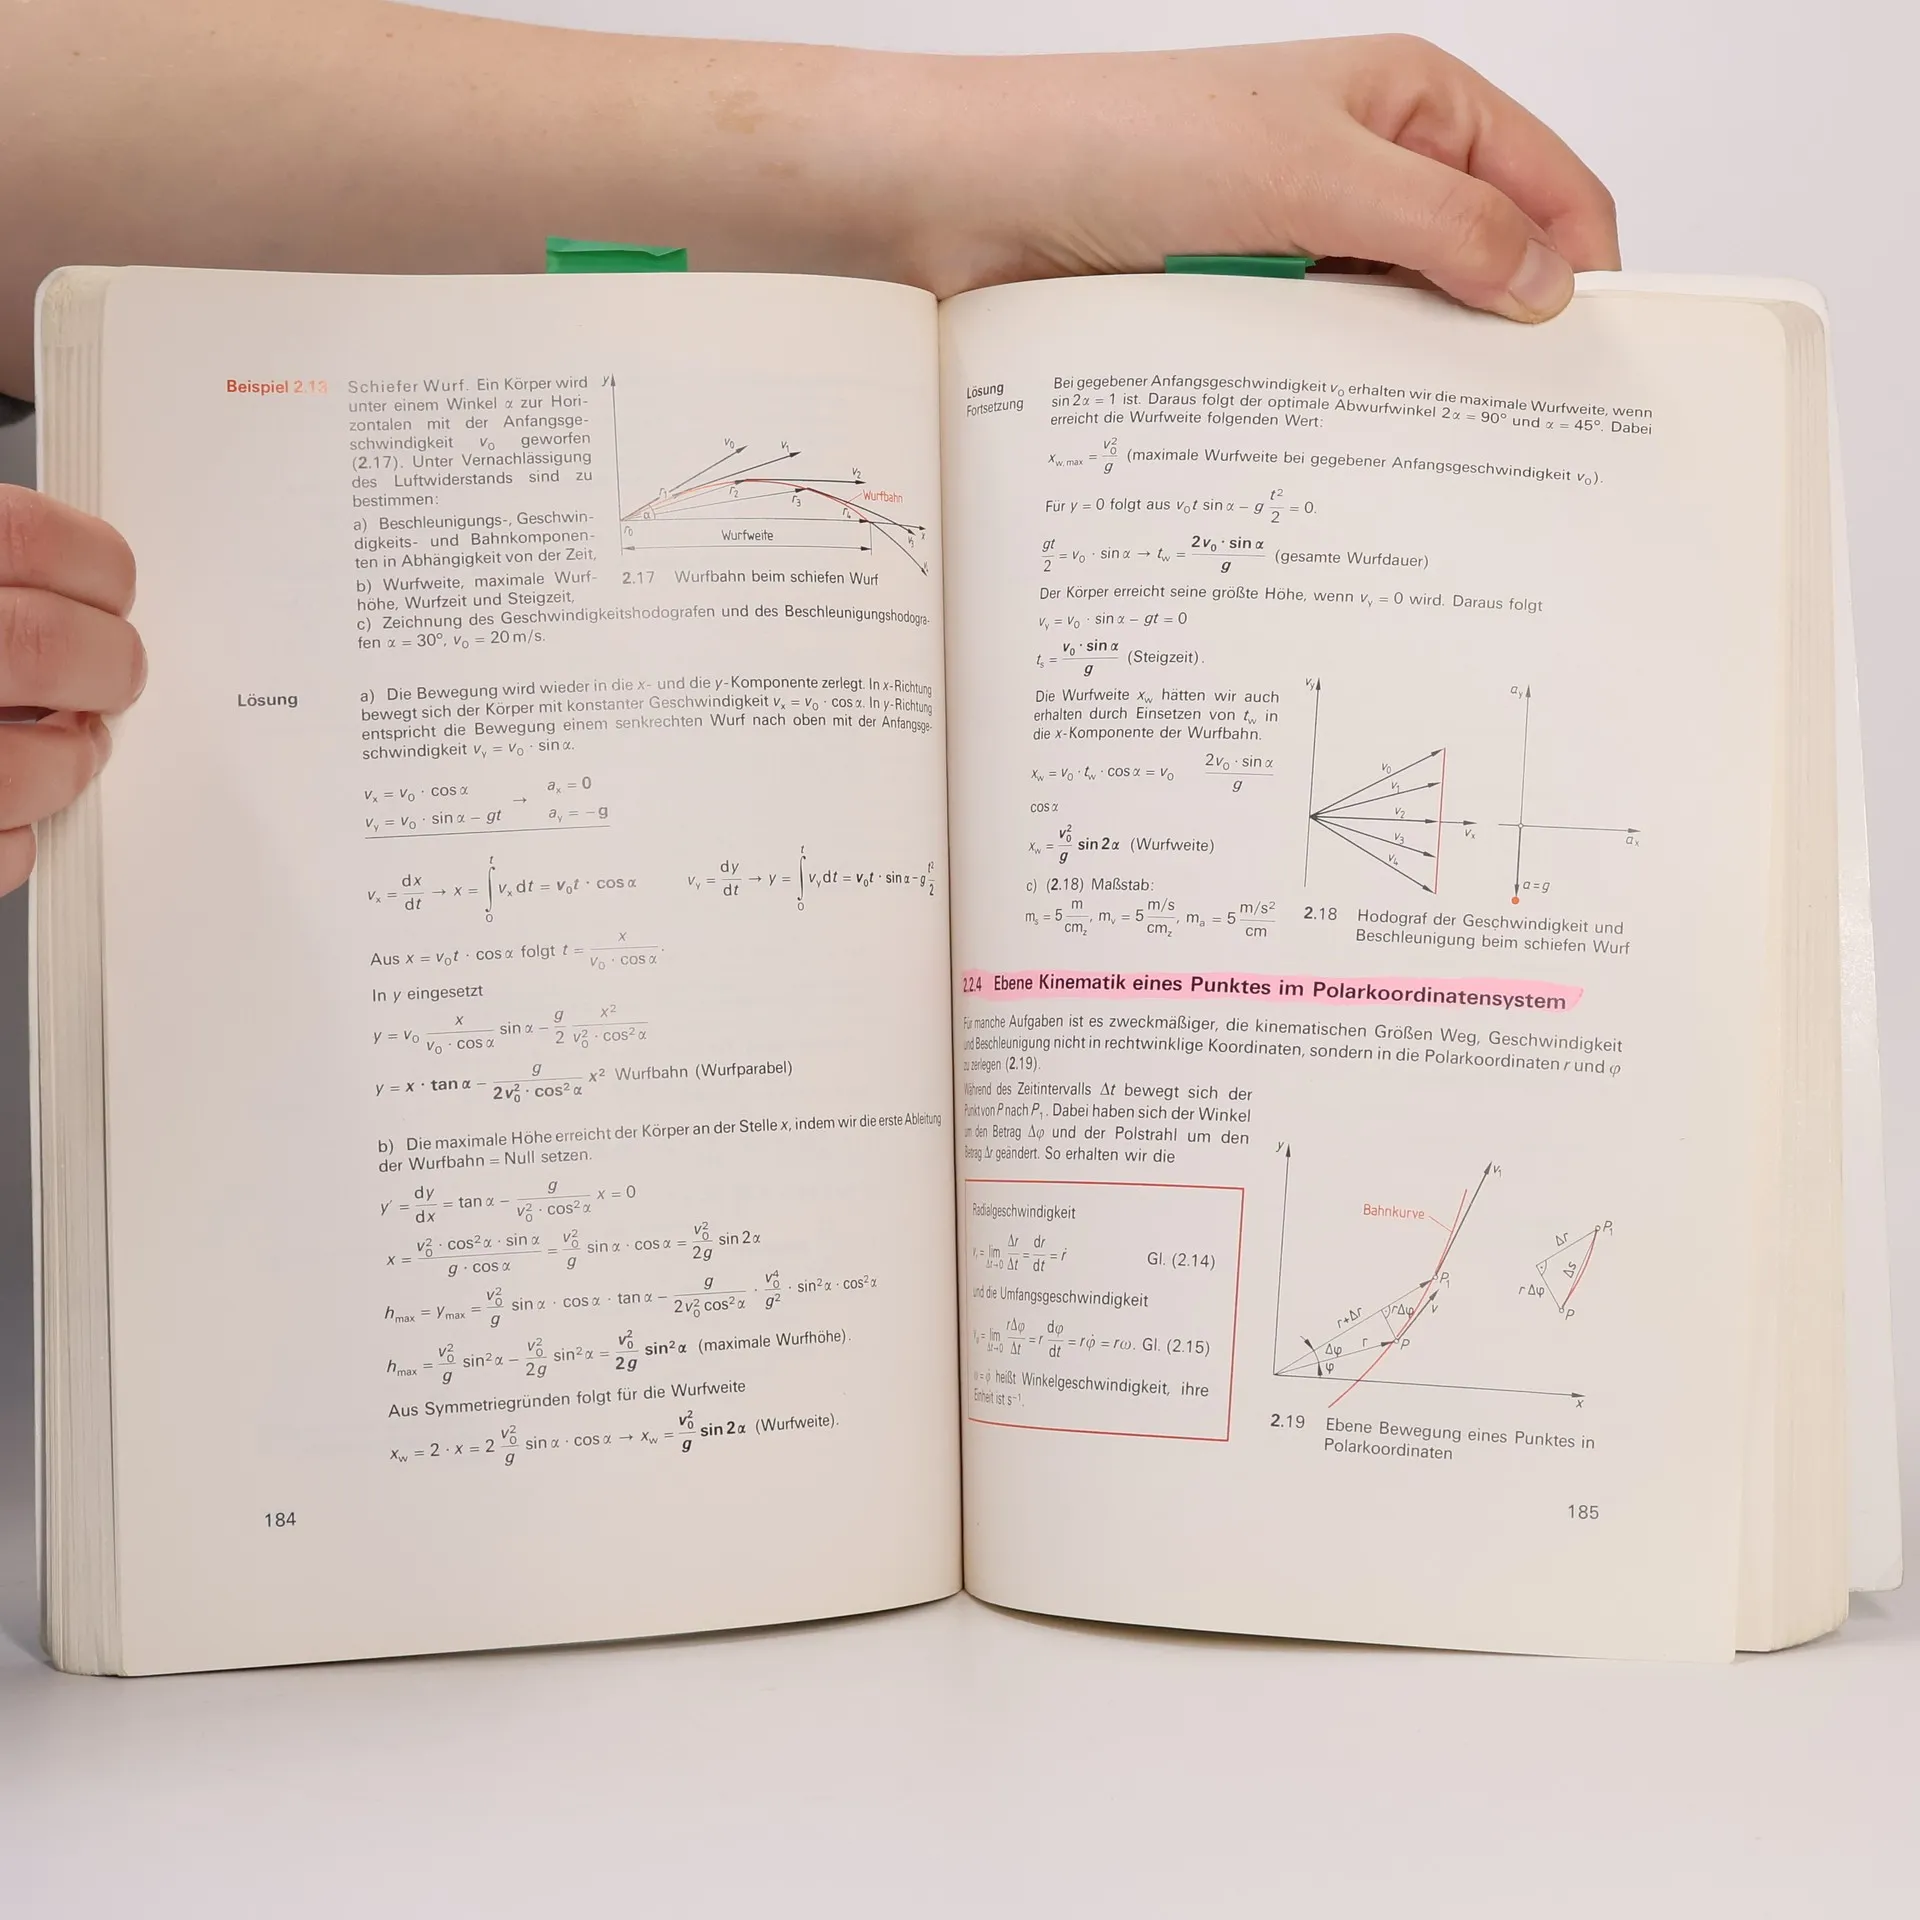 Beispiel 2.13
Schiefer Wurf. Ein Körper wird
unter einem Winkel α zur Hori-
zontalen mit der Anfangsge-
schwindigkeit v₀ geworfen
(2.17). Unter Vernachlässigung
des Luftwiderstands sind zu
bestimmen:
a) Beschleunigungs-, Geschwin-
digkeits- und Bahnkomponen-
ten in Abhängigkeit von der Zeit,
b) Wurfweite, maximale Wurf-
höhe, Wurfzeit und Steigzeit,
c) Zeichnung des Geschwindigkeitshodografen und des Beschleunigungshodogra-
fen α = 30°, v₀ = 20 m/s.
y
v₀ v₁ v₂
r₁ r₂ r₃ r₄
Wurfbahn
α
r₀
v₃ x
Wurfweite
2.17 Wurfbahn beim schiefen Wurf
Lösung
a) Die Bewegung wird wieder in die x- und die y-Komponente zerlegt. In x-Richtung
bewegt sich der Körper mit konstanter Geschwindigkeit vₓ = v₀ · cos α. In y-Richtung
entspricht die Bewegung einem senkrechten Wurf nach oben mit der Anfangsge-
schwindigkeit v_y = v₀ · sin α.
vₓ = v₀ · cos α → aₓ = 0
v_y = v₀ · sin α − gt a_y = −g
vₓ = dx/dt → x = ∫₀ᵗ vₓ dt = v₀t · cos α v_y = dy/dt → y = ∫₀ᵗ v_y dt = v₀t · sin α − g t²/2
Aus x = v₀t · cos α folgt t = x/(v₀ · cos α).
In y eingesetzt
y = v₀ x/(v₀ · cos α) sin α − g/2 x²/(v₀² · cos² α)
y = x · tan α − g/(2 v₀² · cos² α) x² Wurfbahn (Wurfparabel)
b) Die maximale Höhe erreicht der Körper an der Stelle x, indem wir die erste Ableitung
der Wurfbahn = Null setzen.
y′ = dy/dx = tan α − g/(v₀² · cos² α) x = 0
x = (v₀² · cos² α · sin α)/(g · cos α) = v₀²/g sin α · cos α = v₀²/2g sin 2α
h_max = y_max = v₀²/g sin α · cos α · tan α − g/(2 v₀² cos² α) · v₀⁴/g² · sin² α · cos² α
h_max = v₀²/g sin² α − v₀²/2g sin² α = v₀²/2g sin² α (maximale Wurfhöhe).
Aus Symmetriegründen folgt für die Wurfweite
x_w = 2 · x = 2 v₀²/g sin α · cos α → x_w = v₀²/g sin 2α (Wurfweite).
184
Lösung
Fortsetzung
Bei gegebener Anfangsgeschwindigkeit v₀ erhalten wir die maximale Wurfweite, wenn
sin 2α = 1 ist. Daraus folgt der optimale Abwurfwinkel 2α = 90° und α = 45°. Dabei
erreicht die Wurfweite folgenden Wert:
x_w, max = v₀²/g (maximale Wurfweite bei gegebener Anfangsgeschwindigkeit v₀).
Für y = 0 folgt aus v₀t sin α − g t²/2 = 0.
gt/2 = v₀ · sin α → t_w = 2v₀ · sin α/g (gesamte Wurfdauer)
Der Körper erreicht seine größte Höhe, wenn v_y = 0 wird. Daraus folgt
v_y = v₀ · sin α − gt = 0
t_s = v₀ · sin α/g (Steigzeit).
Die Wurfweite x_w hätten wir auch
erhalten durch Einsetzen von t_w in
die x-Komponente der Wurfbahn.
x_w = v₀ · t_w · cos α = v₀ 2v₀ · sin α/g
cos α
x_w = v₀²/g sin 2α (Wurfweite)
c) (2.18) Maßstab:
m_s = 5 m/cm_z, m_v = 5 m/s/cm_z, m_a = 5 m/s²/cm
v_y
v₀
v₁
v₂
vₓ
v₃
v₄
a_y
aₓ
a = g
2.18 Hodograf der Geschwindigkeit und
Beschleunigung beim schiefen Wurf
2.2.4 Ebene Kinematik eines Punktes im Polarkoordinatensystem
Für manche Aufgaben ist es zweckmäßiger, die kinematischen Größen Weg, Geschwindigkeit
und Beschleunigung nicht in rechtwinklige Koordinaten, sondern in die Polarkoordinaten r und φ
zu zerlegen (2.19).
Während des Zeitintervalls Δt bewegt sich der
Punkt von P nach P₁. Dabei haben sich der Winkel
um den Betrag Δφ und der Polstrahl um den
Betrag Δr geändert. So erhalten wir die
Radialgeschwindigkeit
v_r = lim Δt→0 Δr/Δt = dr/dt = ṙ Gl. (2.14)
und die Umfangsgeschwindigkeit
lim Δt→0 rΔφ/Δt = r dφ/dt = rφ̇ = rω. Gl. (2.15)
ω = φ̇ heißt Winkelgeschwindigkeit, ihre
Einheit ist s⁻¹.
y
v₁
Bahnkurve
P₁
r+Δr
rΔφ
v
Δφ
r
P
φ
x
P₁
Δr
Δs
rΔφ
P
2.19 Ebene Bewegung eines Punktes in
Polarkoordinaten
185